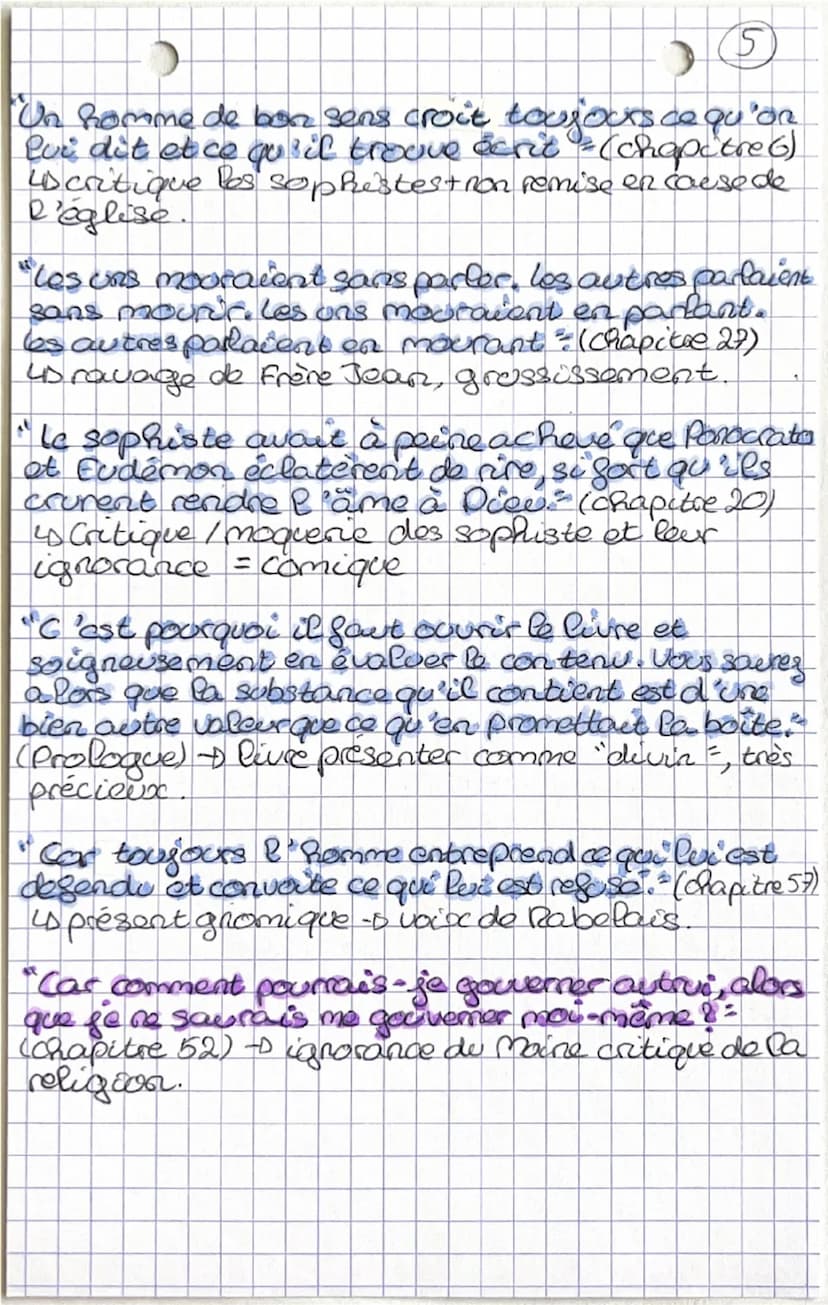 5
"Un homme de bon sens croit toujours ce qu'on
lui dit et ce qu'il trouve écrit" (chapitre 6)
↳ critique les sophistes + non remise en cause de
l'église.
"Les uns mouraient sans parler. Les autres parlaient
sans mourir. Les uns mouraient en parlant.
Les autres parlaient en mourant" (chapitre 27)
↳ ravage de Frère Jean, grossissement.
"Le sophiste avait à peine achevé que Ponocrates
et Eudémon éclatèrent de rire, si fort qu'ils
crurent rendre l'âme à Dieu." (chapitre 20)
↳ Critique / moquerie des sophiste et leur
ignorance = comique
"C'est pourquoi il faut ouvrir le livre et
soigneusement en évaluer le contenu. Vous saurez
alors que la substance qu'il contient est d'une
bien autre valeur que ce qu'en promettait la boîte."
(Prologue) → livre présenter comme "divin", très
précieux.
"Car toujours l'homme entreprend ce qui lui est
defendu et convoite ce qui lui est refusé." (chapitre 57)
↳ présent gnomique → voix de Rabelais.
"Car comment pourrais-je gouverner autrui, alors
que je ne saurais me gouverner moi-même ?"
(chapitre 52) → ignorance du Moine critique de la
religion.